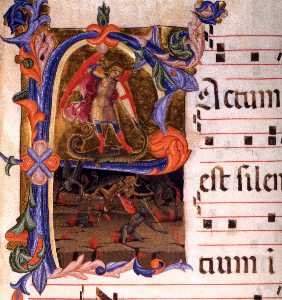 Actum
est silen
tium i